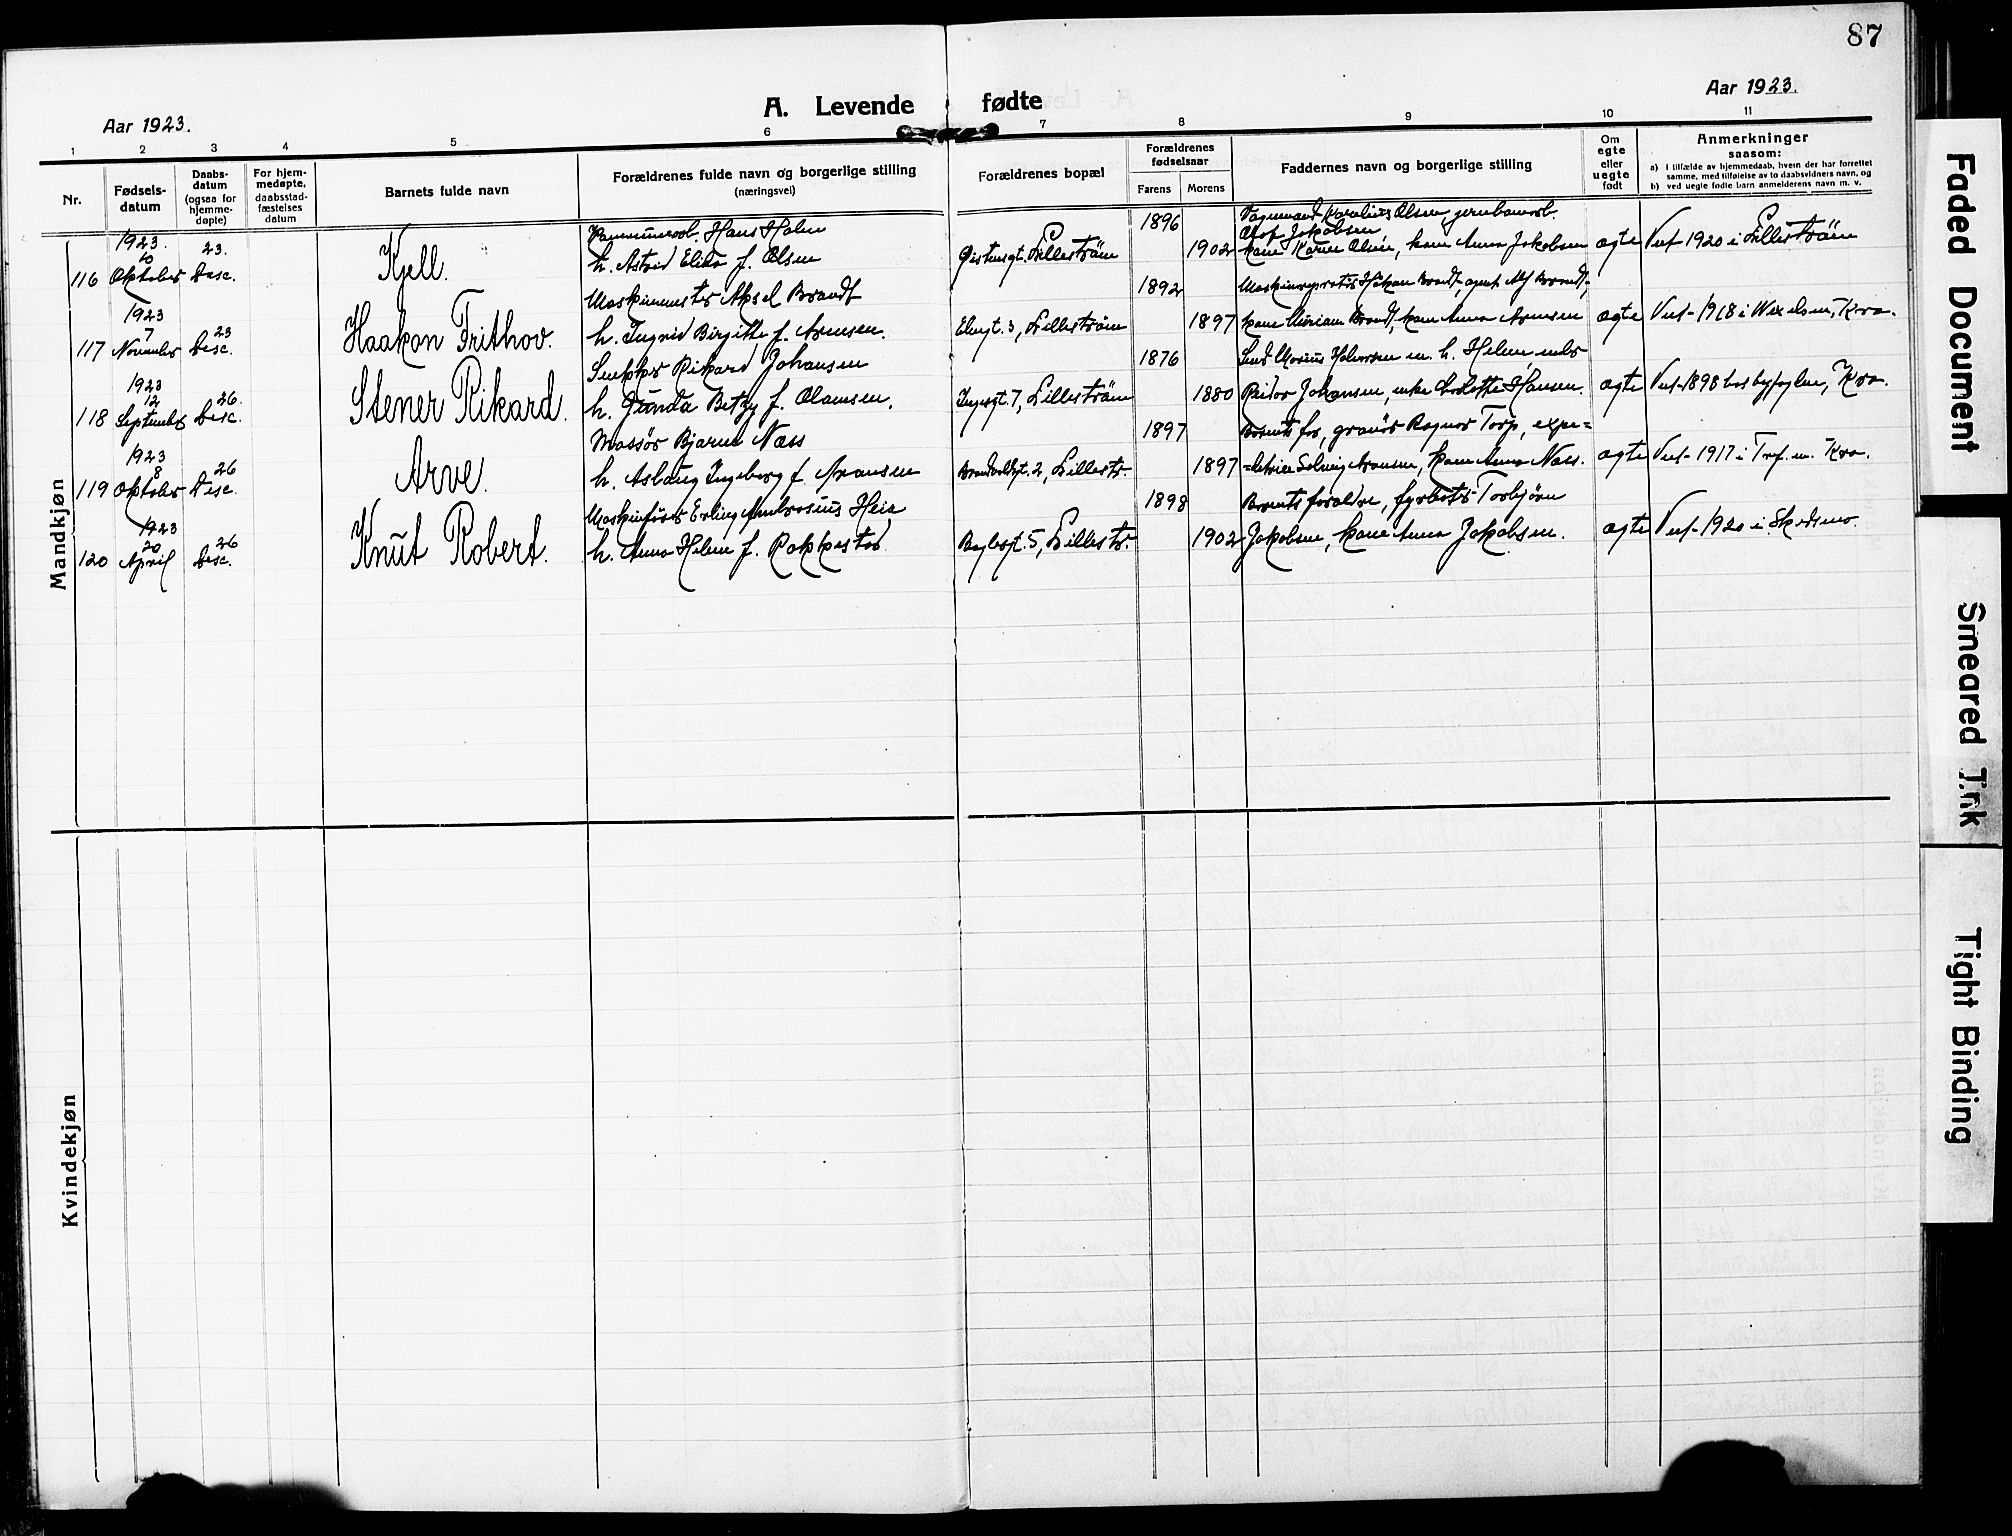 87
Aar 1923.
A. Levende fødte
Aar 1923.
1 2 3 4 5 6 7 8 9 10 11
Nr.
Fødsels-
datum
Daabs-
datum
(ogsaa for
hjemme-
døpte)
For hjem-
medøpte,
daabsstad-
fæstelses
datum
Barnets fulde navn
Forældrenes fulde navn og borgerlige stilling
(næringsvei)
Forældrenes bopæl
Forældrenes
fødselsaar
Farens Morens
Faddernes navn og borgerlige stilling
Om
egte
eller
uegte
født
Anmerkninger
saasom:
a) i tilfælde av hjemmedaab, hvem der har forrettet
samme, med tilføielse av to daabsvidners navn, og
b) ved uegte fødte barn anmelderens navn m. v.
Mandkjøn
116
1923.
10
Oktober
23.
Desc.
Kjell.
Hans Holm
h. Astrid Elida f. Olsen
Lillestrøm
1896
1902
Olsen, jernbanearb.
Olof Jakobsen
kone Karen Olsen, kone Anna Jakobsen
egte
Vut 1920 i Lillestrøm
117
1923
7
November
23
Desc.
Haakon Frithov.
Maskinmester Aksel Brandt
h. Ingrid Birgitte f. Arnesen.
Elvegt. 3, Lillestrøm
1892
1897
Maskinreparatør Håkon Brandt, agent Alf Brandt,
kone Miriam Brandt, kone Anna Arnesen
egte
Vut 1918 i Wexelsen, Kra.
118
1923
12
September
26.
Desc.
Stener Rikard.
Snekker Rikard Johansen
h. Gunda Betzy f. Olamsen.
Ingesgt. 7, Lillestrøm
1876
1880
Smed Marius Halvorsen m. h. Helene
Reidar Johansen, enke Hansen.
egte
Vut 1898 hos Kra.
119
1923
8
Oktober
26
Desc.
Arve.
Massør Bjarne Næss
h. Aslaug Ingeborg f. Aronsen
2, Lillestr.
1897
1897
Barnets far, gravør Ragnar Torp, expe=
=ditrise Solveig Aronsen, kone Anna Næss.
egte
Vut 1917 i Tref. m. Kra.
120
1923
20
April
26
Desc.
Knut Robert.
Maskinfører Erling Ambrosius Heia
h. Anna Helene f. Rokkestad
5, Lillestr.
1898
1902
Barnets foreldre, fyrbøter Torbjørn
Jakobsen, kone Anna Jakobsen.
egte
Vut 1920 i Skedsmo.
Kvindekjøn
Faded Document
Smeared Ink
Tight Binding